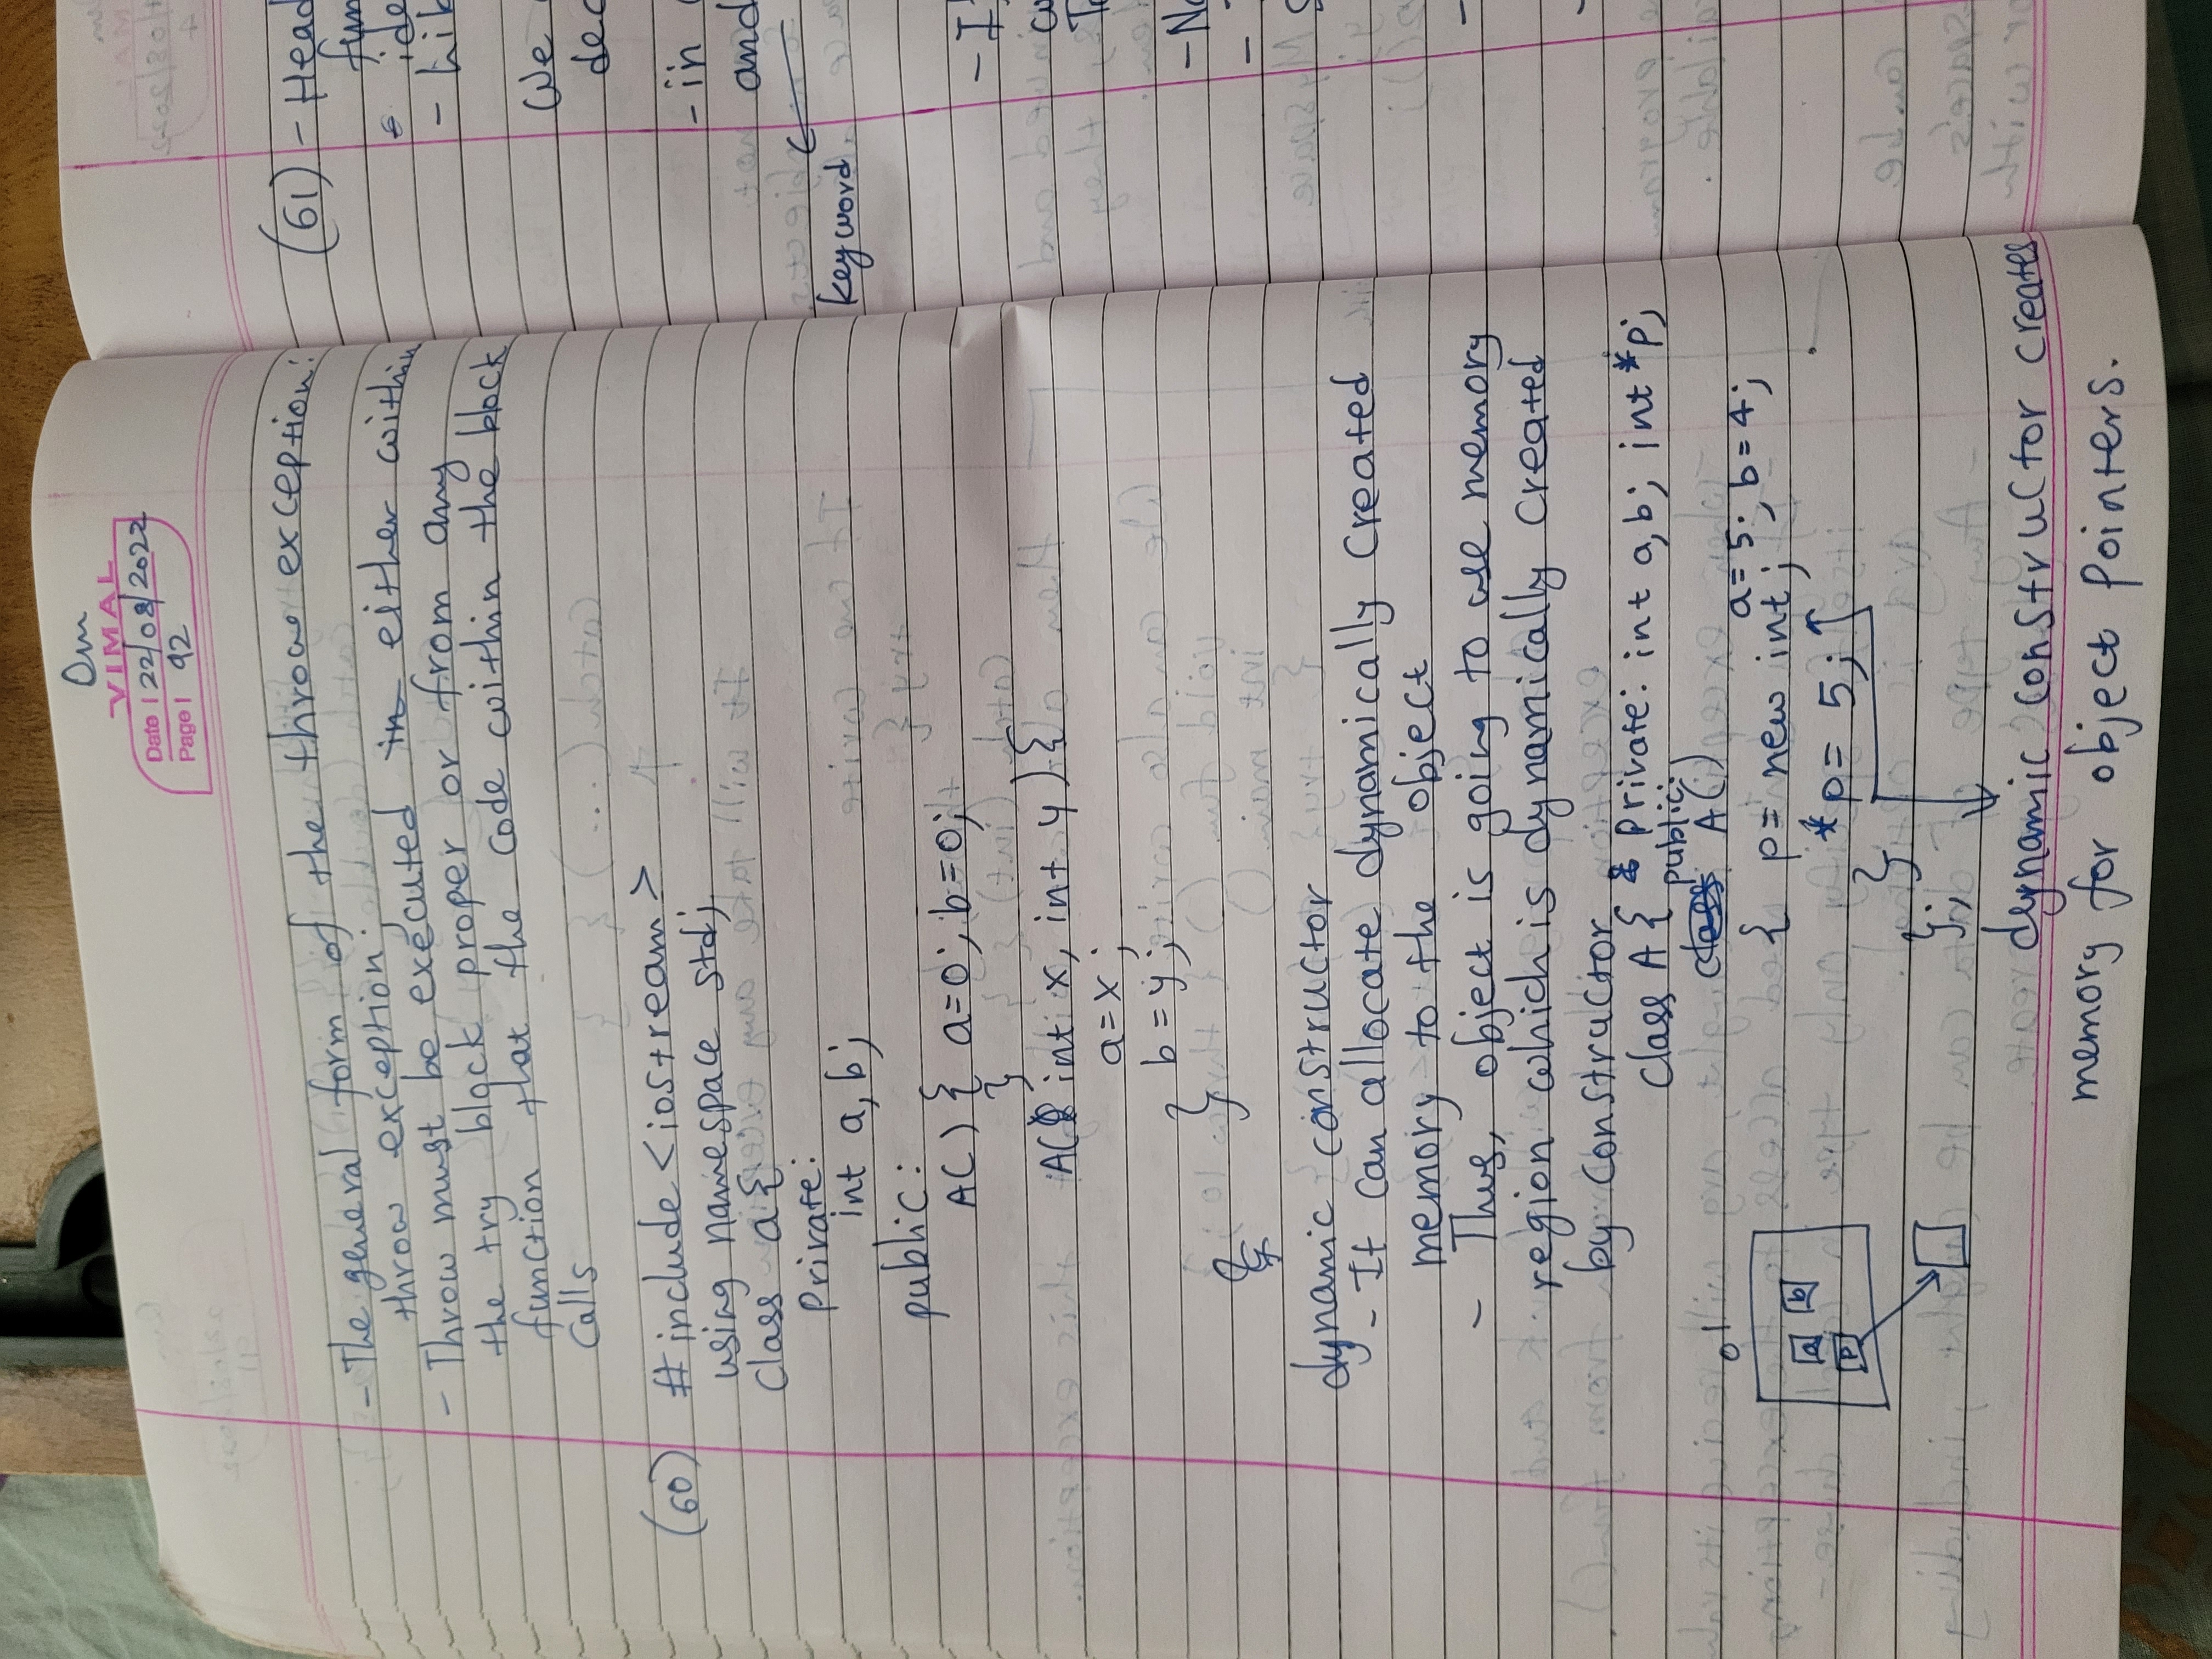 Om
VIMAL
Date 22/08/2022
Page 92
- The general form of the throw exception:
throw exception;
- Throw must be executed in either within
the try block proper or from any
function that the code within the block
calls
(60) #include <iostream>
using namespace std;
class a{
Private:
int a, b;
public:
A() { a=0; b=0;
}
A( int x, int y) {
a=x;
b=y;
}
dynamic constructor
- It can allocate dynamically created
memory to the object
- Thus, object is going to use memory
region which is dynamically created
by constructor
class A { Private: int a,b; int *p;
public:
class A()
a=5; b=4;
{ p= new int;
*p= 5;
}
};
o1
a b
dynamic constructor creates
memory for object pointers.
(61) - Head
fun
ide
- Lib
We
dec
- in
and
keyword
- It
- No